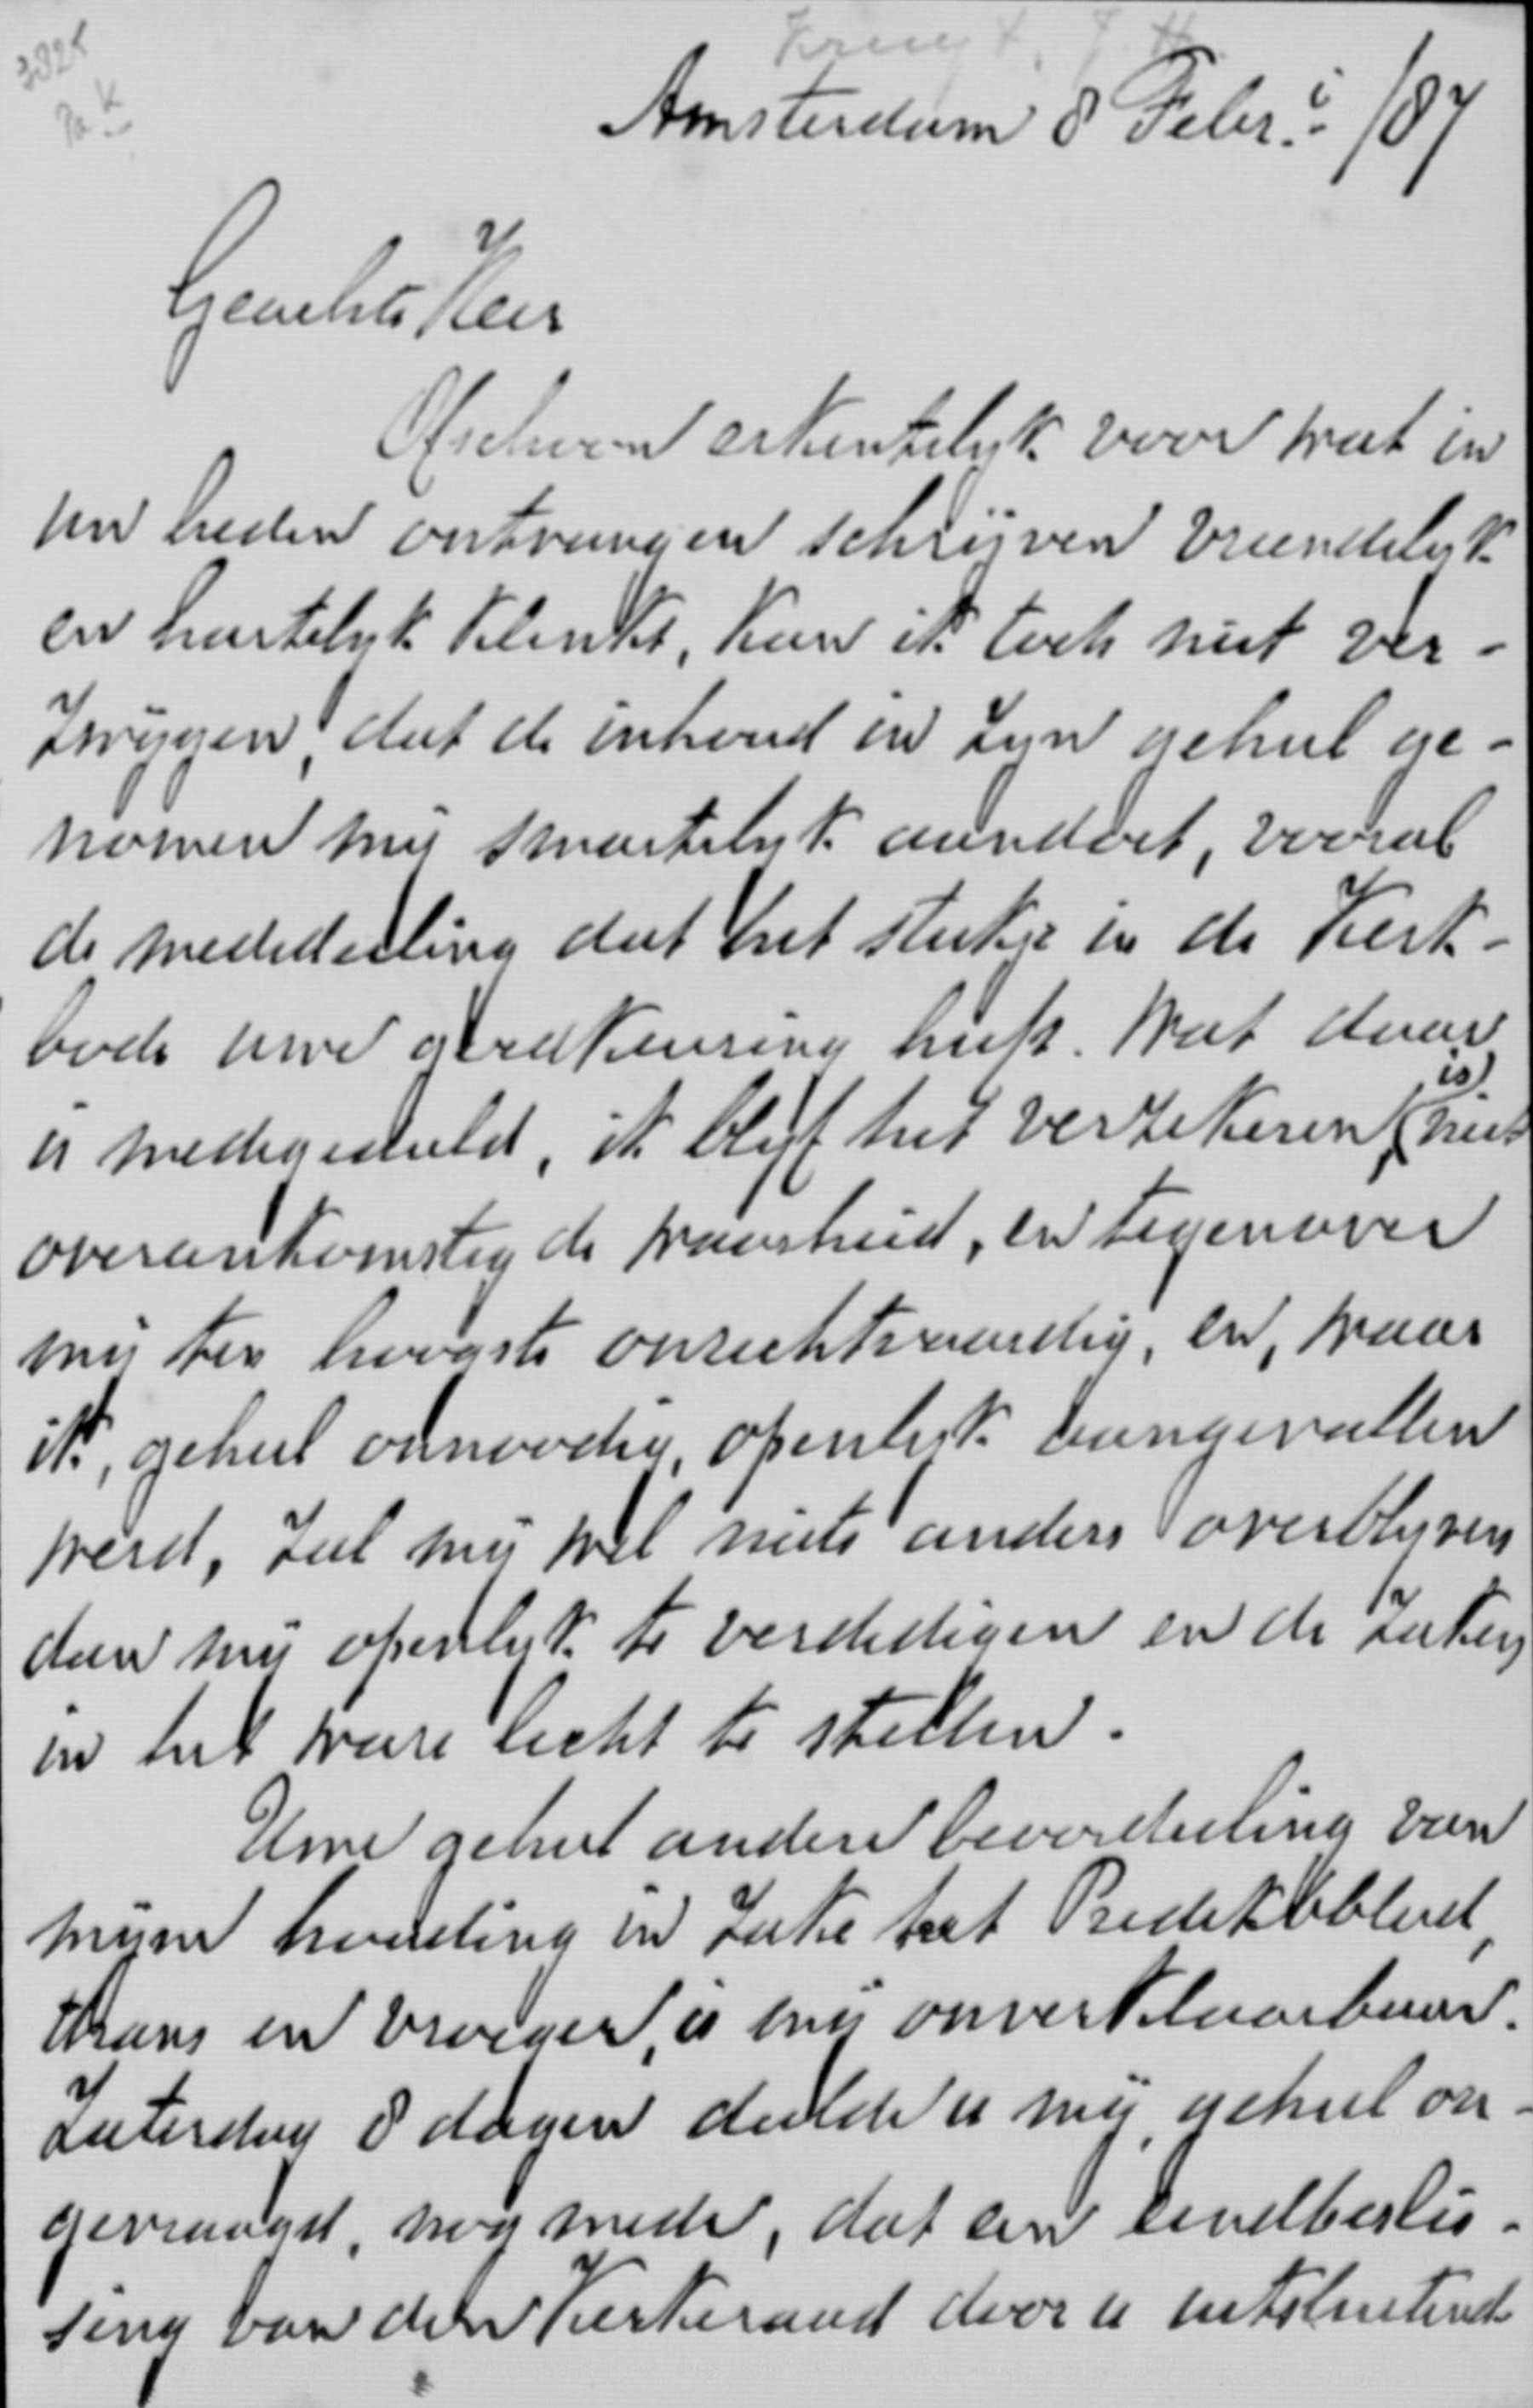 Kruyt, J H.
3325
Pa K
Amsterdam 8 Febr.i /87
Geachte Heer
Ofschoon erkentelyk voor wat in
uw heden ontvangen schrijven vriendelyk
en hartelyk klinkt, kan ik toch niet ver-
zwijgen, dat de inhoud in zyn geheel ge-
nomen mij smartelyk aandoet, vooral
de mededeeling dat het stukje in de Kerk-
bode uwe goedkeuring heeft. Wat daar
is medegedeeld, ik blyf het verzekeren, (is) niet
overeenkomstig de waarheid, en tegenover
mij ten hoogste onrechtvaardig, en, waar
ik, geheel onnoodig, openlyk aangevallen
werd, zal mij wel niets anders overblyven
dan mij openlyk te verdedigen en de zaken
in het ware licht te stellen.
Uwe geheel andere beoordeeling van
mijne houding in zake het Predikbblad,
thans en vroeger, is mij onverklaarbaar.
Zaterdag 8 dagen deelde u mij, geheel on-
gevraagd, nog mede, dat een eindbeslis-
sing van den Kerkeraad door u uitsluitend